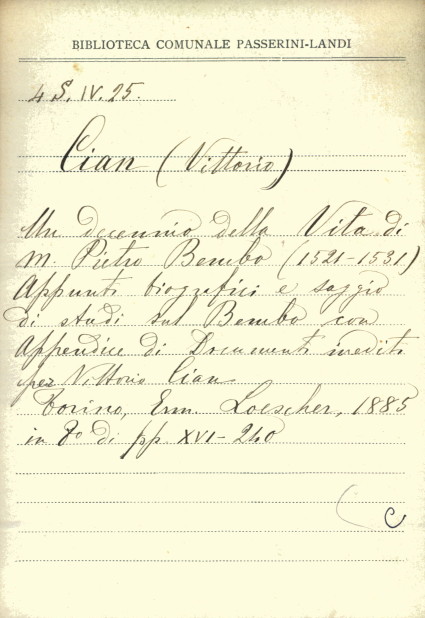 BIBLIOTECA COMUNALE PASSERINI-LANDI
4 S. IV. 25.
Cian (Vittorio)
Un decennio della Vita di
M. Pietro Bembo (1521-1531)
Appunti biografici e saggio
di studi sul Bembo con
Appendice di Documenti inediti
per Vittorio Cian
Torino, Erm. Loescher, 1885
in 8º di pp XVI-240
C